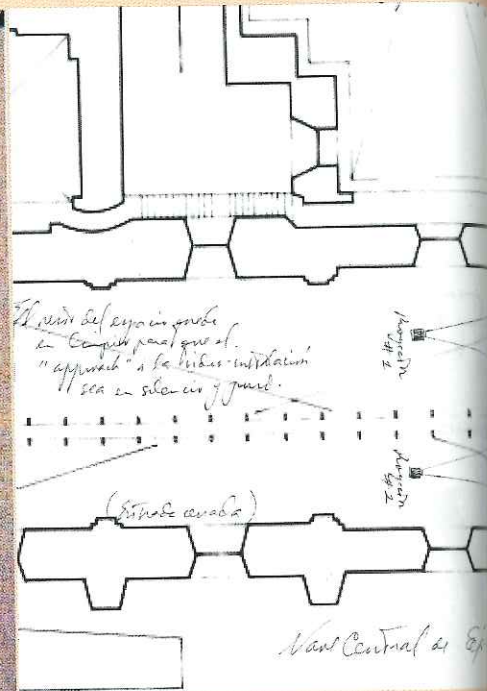 El resto del espacio queda
en limpio para que el
"approach" a la video-instalación
sea en silencio y
Proyección
#1
Proyección
#2
(Entrada cerrada)
Nave Central de